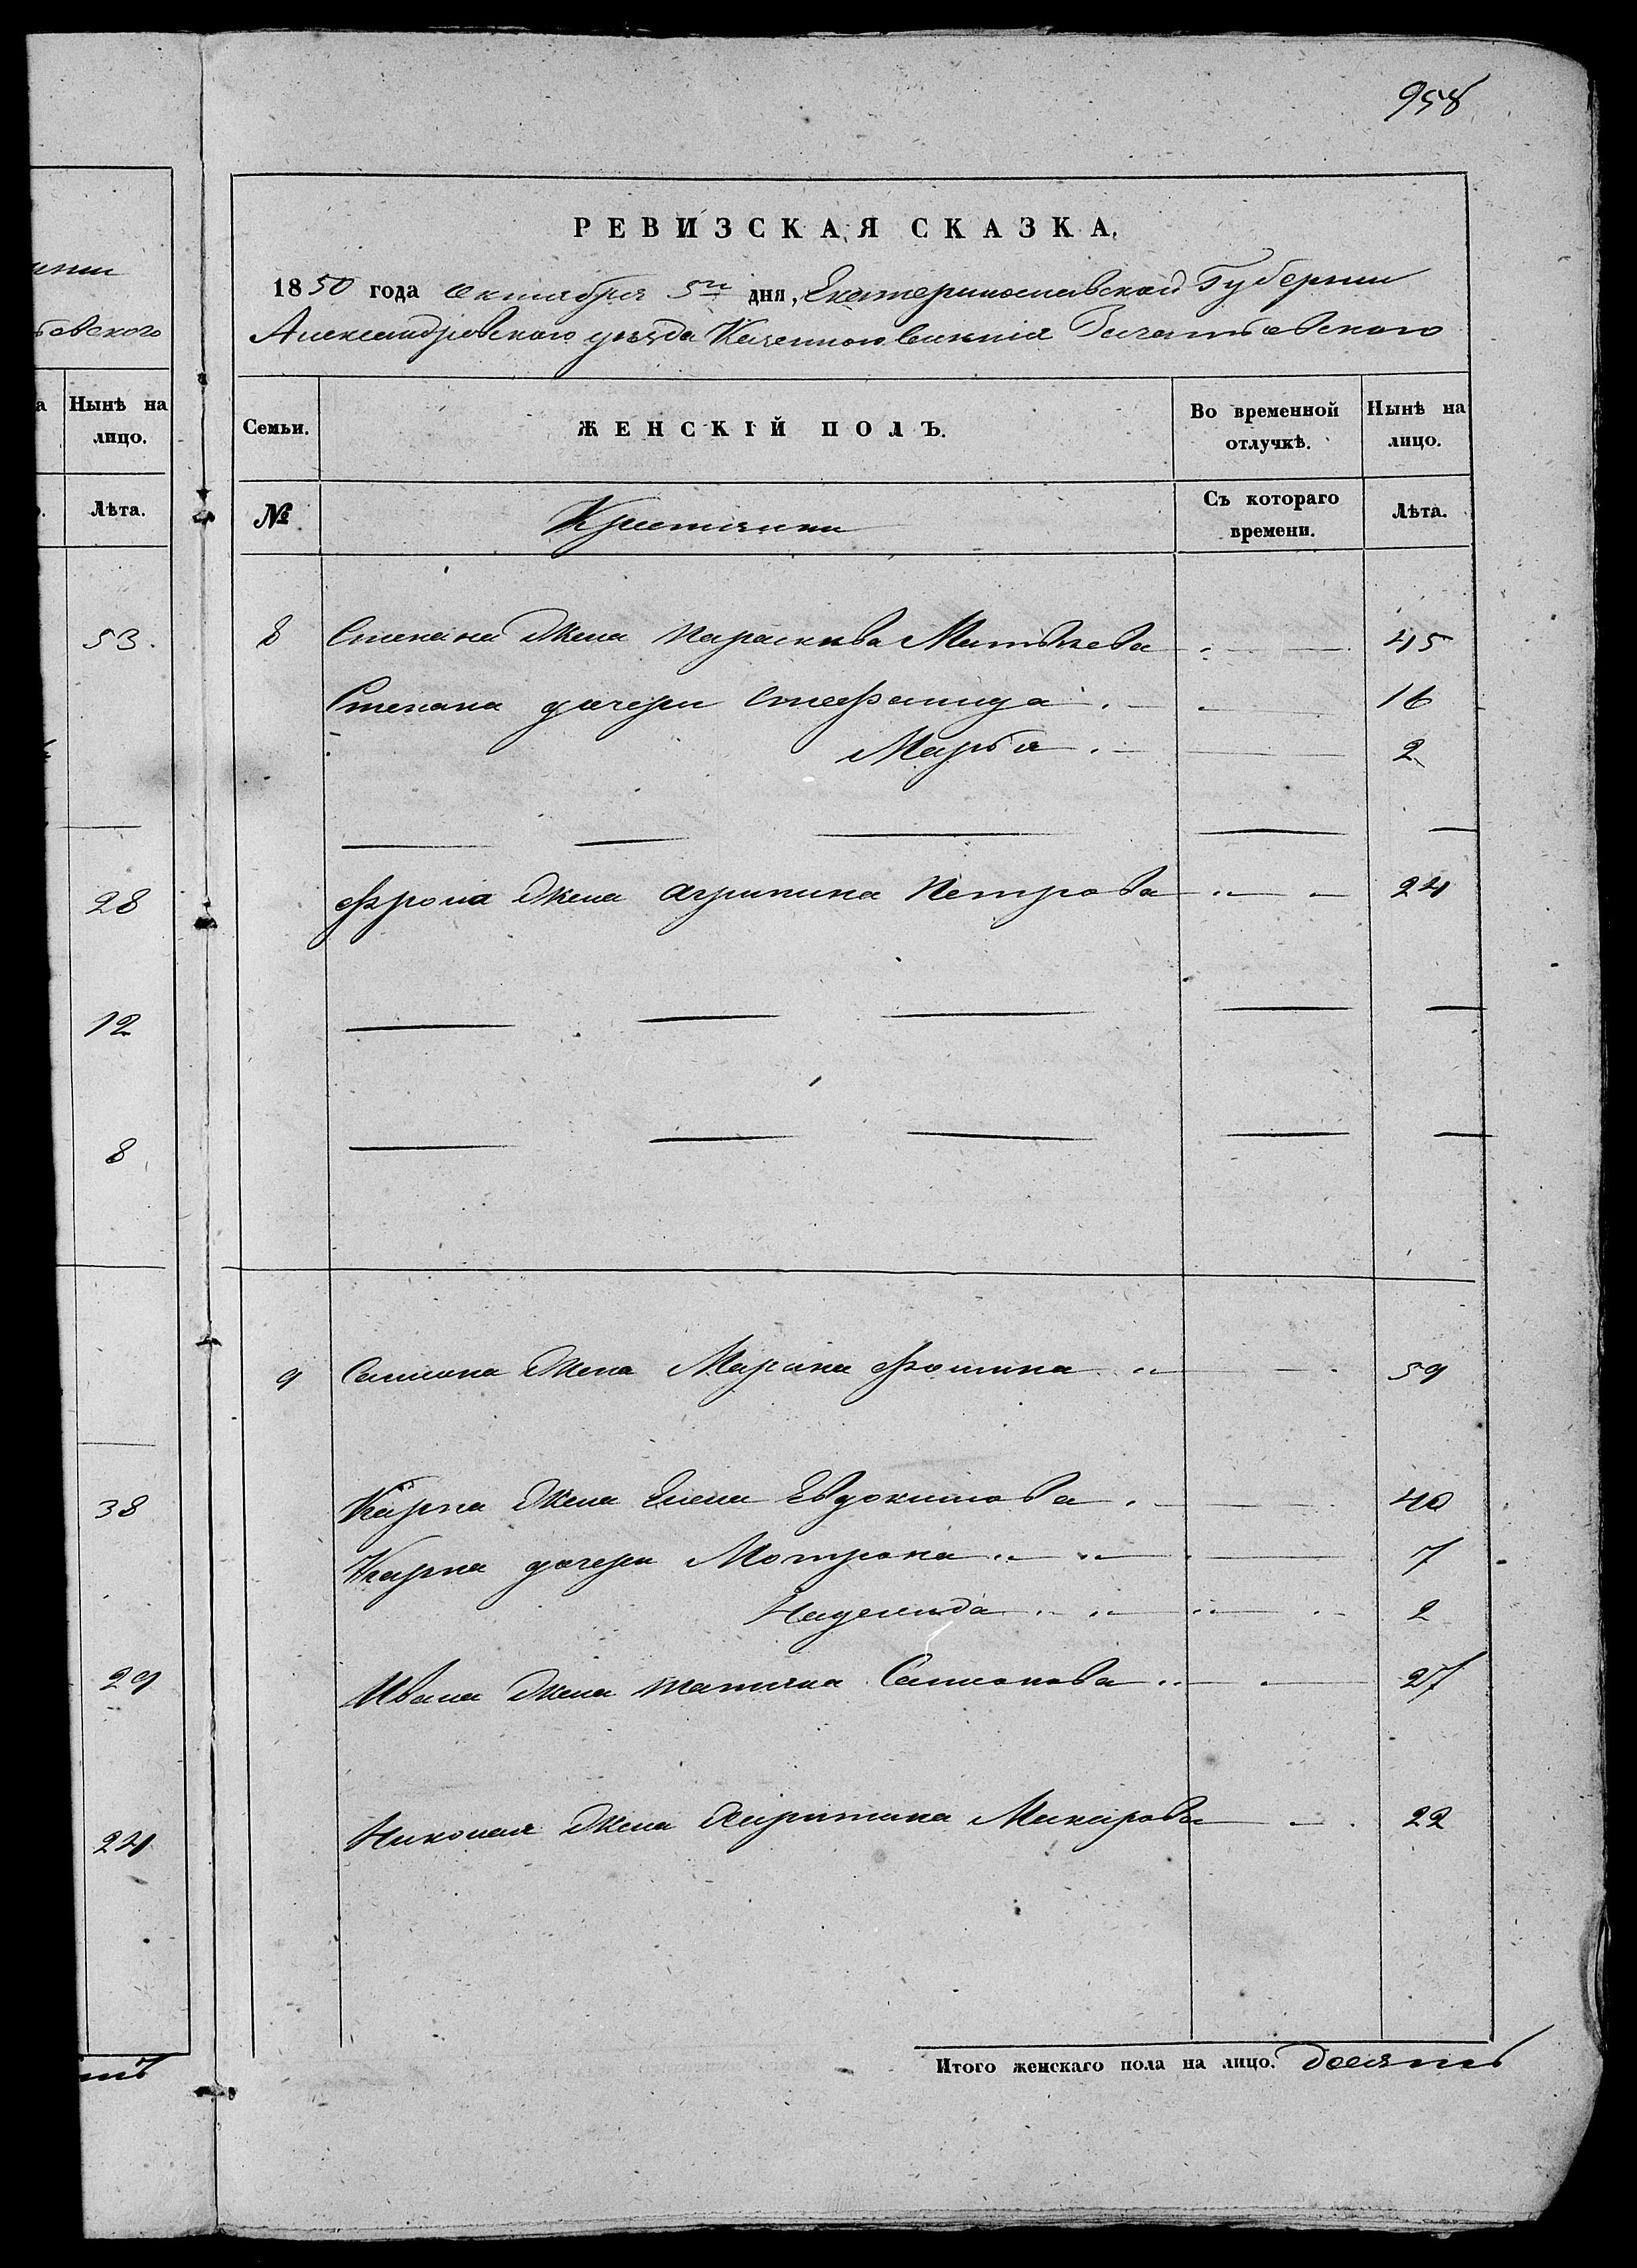 958
РЕВИЗСКАЯ СКАЗКА.
1850 года октября 5го дня, Екатеринославской Губернии
Александровского уезда Казенного селения Зачатьевского
ьевского
Нынѣ на лицо.
Лѣта.
53.
28
12
8
38
29
24
Семьи.
ЖЕНСКІЙ ПОЛЪ.
Во временной отлучкѣ.
Нынѣ на лицо.
№
Крестьяни
Съ котораго времени.
Лѣта.
8 Степана Жена Параскева Матвѣева 45
Степана дочери Стефанида 16
Марья 2
Фрола Жена Агрипина Петрова 24
9 Самсона Жена Марина Фомина 59
Карпа Жена Елена Евдокимова 40
Карпа дочери Мотрона 7
Надежда 2
Ивана Жена Татияна Самсонова 27
Николая Жена Акрипина Макарова 22
Итого женскаго пола на лицо. десять